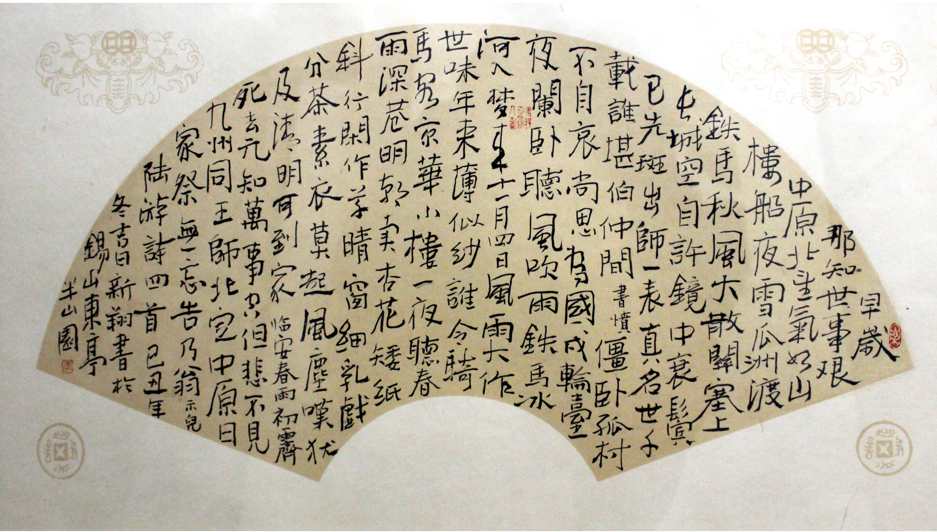 早歲
那知世事艰
中原北望氣如山
樓船夜雪瓜洲渡
鉄馬秋風大散關塞上
长城空自許鏡中衰鬓
已先斑出師一表真名世千
載誰堪伯仲間 書憤 僵卧孤村
不自哀尚思为國戍輪臺
夜闌卧聽風吹雨鉄馬冰
河入梦来 十一月四日風雨大作
世味年来薄似纱誰令騎
馬客京華小樓一夜聽春
雨深巷明朝卖杏花矮紙
斜行閑作草晴窗細乳戲
分茶素衣莫起風塵嘆犹
及清明可到家 临安春雨初霽
死去元知萬事空但悲不見
九州同王師北定中原日
家祭無忘告乃翁 示兒
陆游詩四首己丑年
冬吉日新翔書於
錫山東亭
半山園